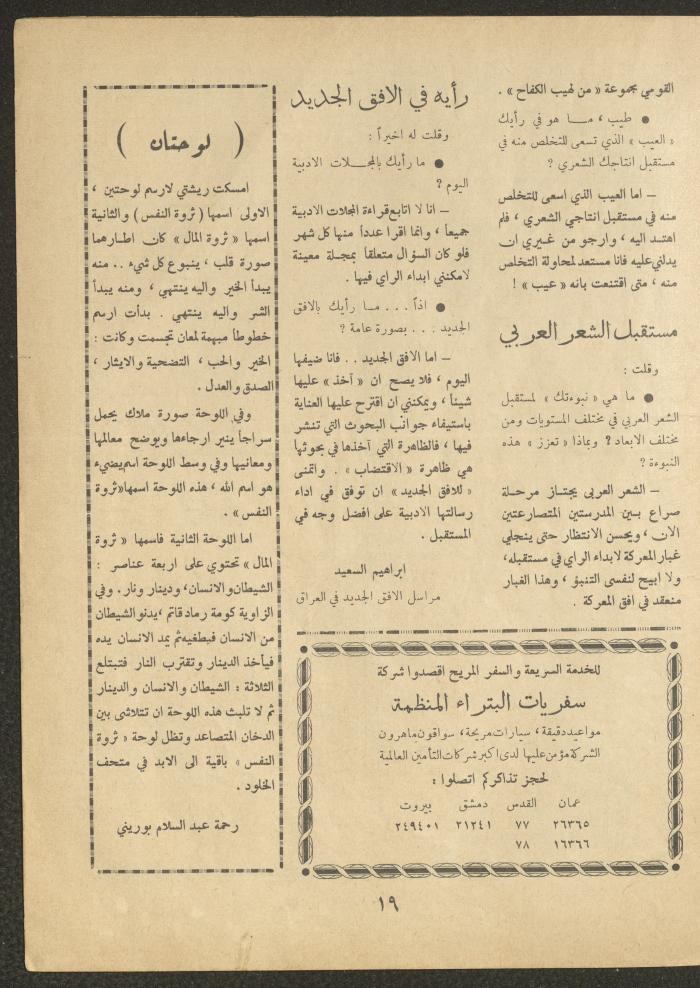 القومي بمجموعة « من لهيب الكفاح » .
● طيب ، مـا هو في رأيك
« العيب » الذي تسعى للتخلص منه في
مستقبل انتاجك الشعري ؟
ــ اما العيب الذي اسعى للتخلص
منه في مستقبل انتاجي الشعري ، فلم
اهتد اليه ، وارجو من غيري ان
يدلني عليه فانا مستعد لمحاولة التخلص
منه ، متى اقتنعت بانه « عيب » !
مستقبل الشعر العربي
وقلت :
● ما هي « نبوءتك » لمستقبل
الشعر العربي في مختلف المستويات ومن
مختلف الابعاد ؟ وبماذا « تعزز » هذه
النبوءة ؟
ــ الشعر العربي يجتـاز مرحـلة
صراع بـين المدرستين المتصارعتين
الآن ، ويحسن الانتظار حتى ينجلي
غبار المعركة لابداء الراي في مستقبله،
ولا ابيح لنفسي التنبؤ ، وهذا الغبار
منعقد في افق المعركة .
رأيه في الافق الجديد
وقلت له اخيراً :
● ما رأيك بالمجـلات الادبية
اليوم ؟
ــ انا لا اتابع قراءة المجلات الادبية
جميعاً ، وانما اقرا عدداً منها كل شهر
فلو كان السؤال متعلقاً بمجـلة معينة
لامكنني ابداء الراي فيها .
● اذاً . . . مـا رأيك بالافق
الجديد . . . بصورة عامة ؟
ــ اما الافق الجديد . . فانا ضيفها
اليوم ، فلا يصح ان « آخذ » عليها
شيئاً ، ويمكنني ان اقترح عليها العناية
باستيفاء جوانب البحوث التي تنشر
فيها ، فالظاهرة التي آخذها في بحوثها
هي ظاهرة « الاقتضاب » . واتمنى
« للافق الجديد » ان توفق في اداء
رسالتها الادبية على افضل وجه في
المستقبل .
ابراهيم السعيد
مراسل الافق الجديد في العراق
( لوحتان )
امسكت ريشتي لارسم لوحتين ،
الاولى اسمها ( ثروة النفس ) والثانية
اسمها « ثروة المال » كان اطـارهما
صورة قلب ، ينبوع كل شيء . . منه
يبدأ الخير واليه ينتهي ، ومنه يبدأ
الشر واليه ينتهي . بدأت ارسم
خطوطاً مبهمة لمعان تجسمت وكانت :
الخير والحب ، التضحية والايثار ،
الصدق والعدل .
وفي اللوحة صورة ملاك يحمل
سراجاً ينير ارجاءها ويوضح معالمها
ومعانيها وفي وسط اللوحة اسم يضيء
هو اسم الله ، هذه اللوحة اسمها «ثروة
النفس » .
اما اللوحة الثانية فاسمها « ثروة
المال » تحتوي على اربعة عناصر :
الشيطان والانسان، ودينار ونار. وفي
الزاوية كومة رماد قاتم ، يدنو الشيطان
من الانسان فيطغيه ثم يمد الانسان يده
فيأخذ الدينار وتقترب النار فتبتلع
الثلاثة : الشيطان والانسان والدينار
ثم لا تلبث هذه اللوحة ان تتلاشى بين
الدخان المتصاعد وتظل لوحة « ثروة
النفس » باقية الى الابد في متحف
الخلود .
رحمة عبد السلام بوريني
للخدمة السريعة والسفر المريح اقصدوا شركة
سفريات البتراء المنظمة
مواعيد دقيقة ، سيارات مريحة، سواقون ماهرون
الشركة مؤمن عليها لدى اكبر شركات التأمين العالمية
لحجز تذاكركم اتصلوا :
عمان القدس دمشق بيروت
٢٦٣٦٥ ٧٧ ٢١٢٤١ ٢٤٩٤٠١
١٦٣٦٦ ٧٨
١٩